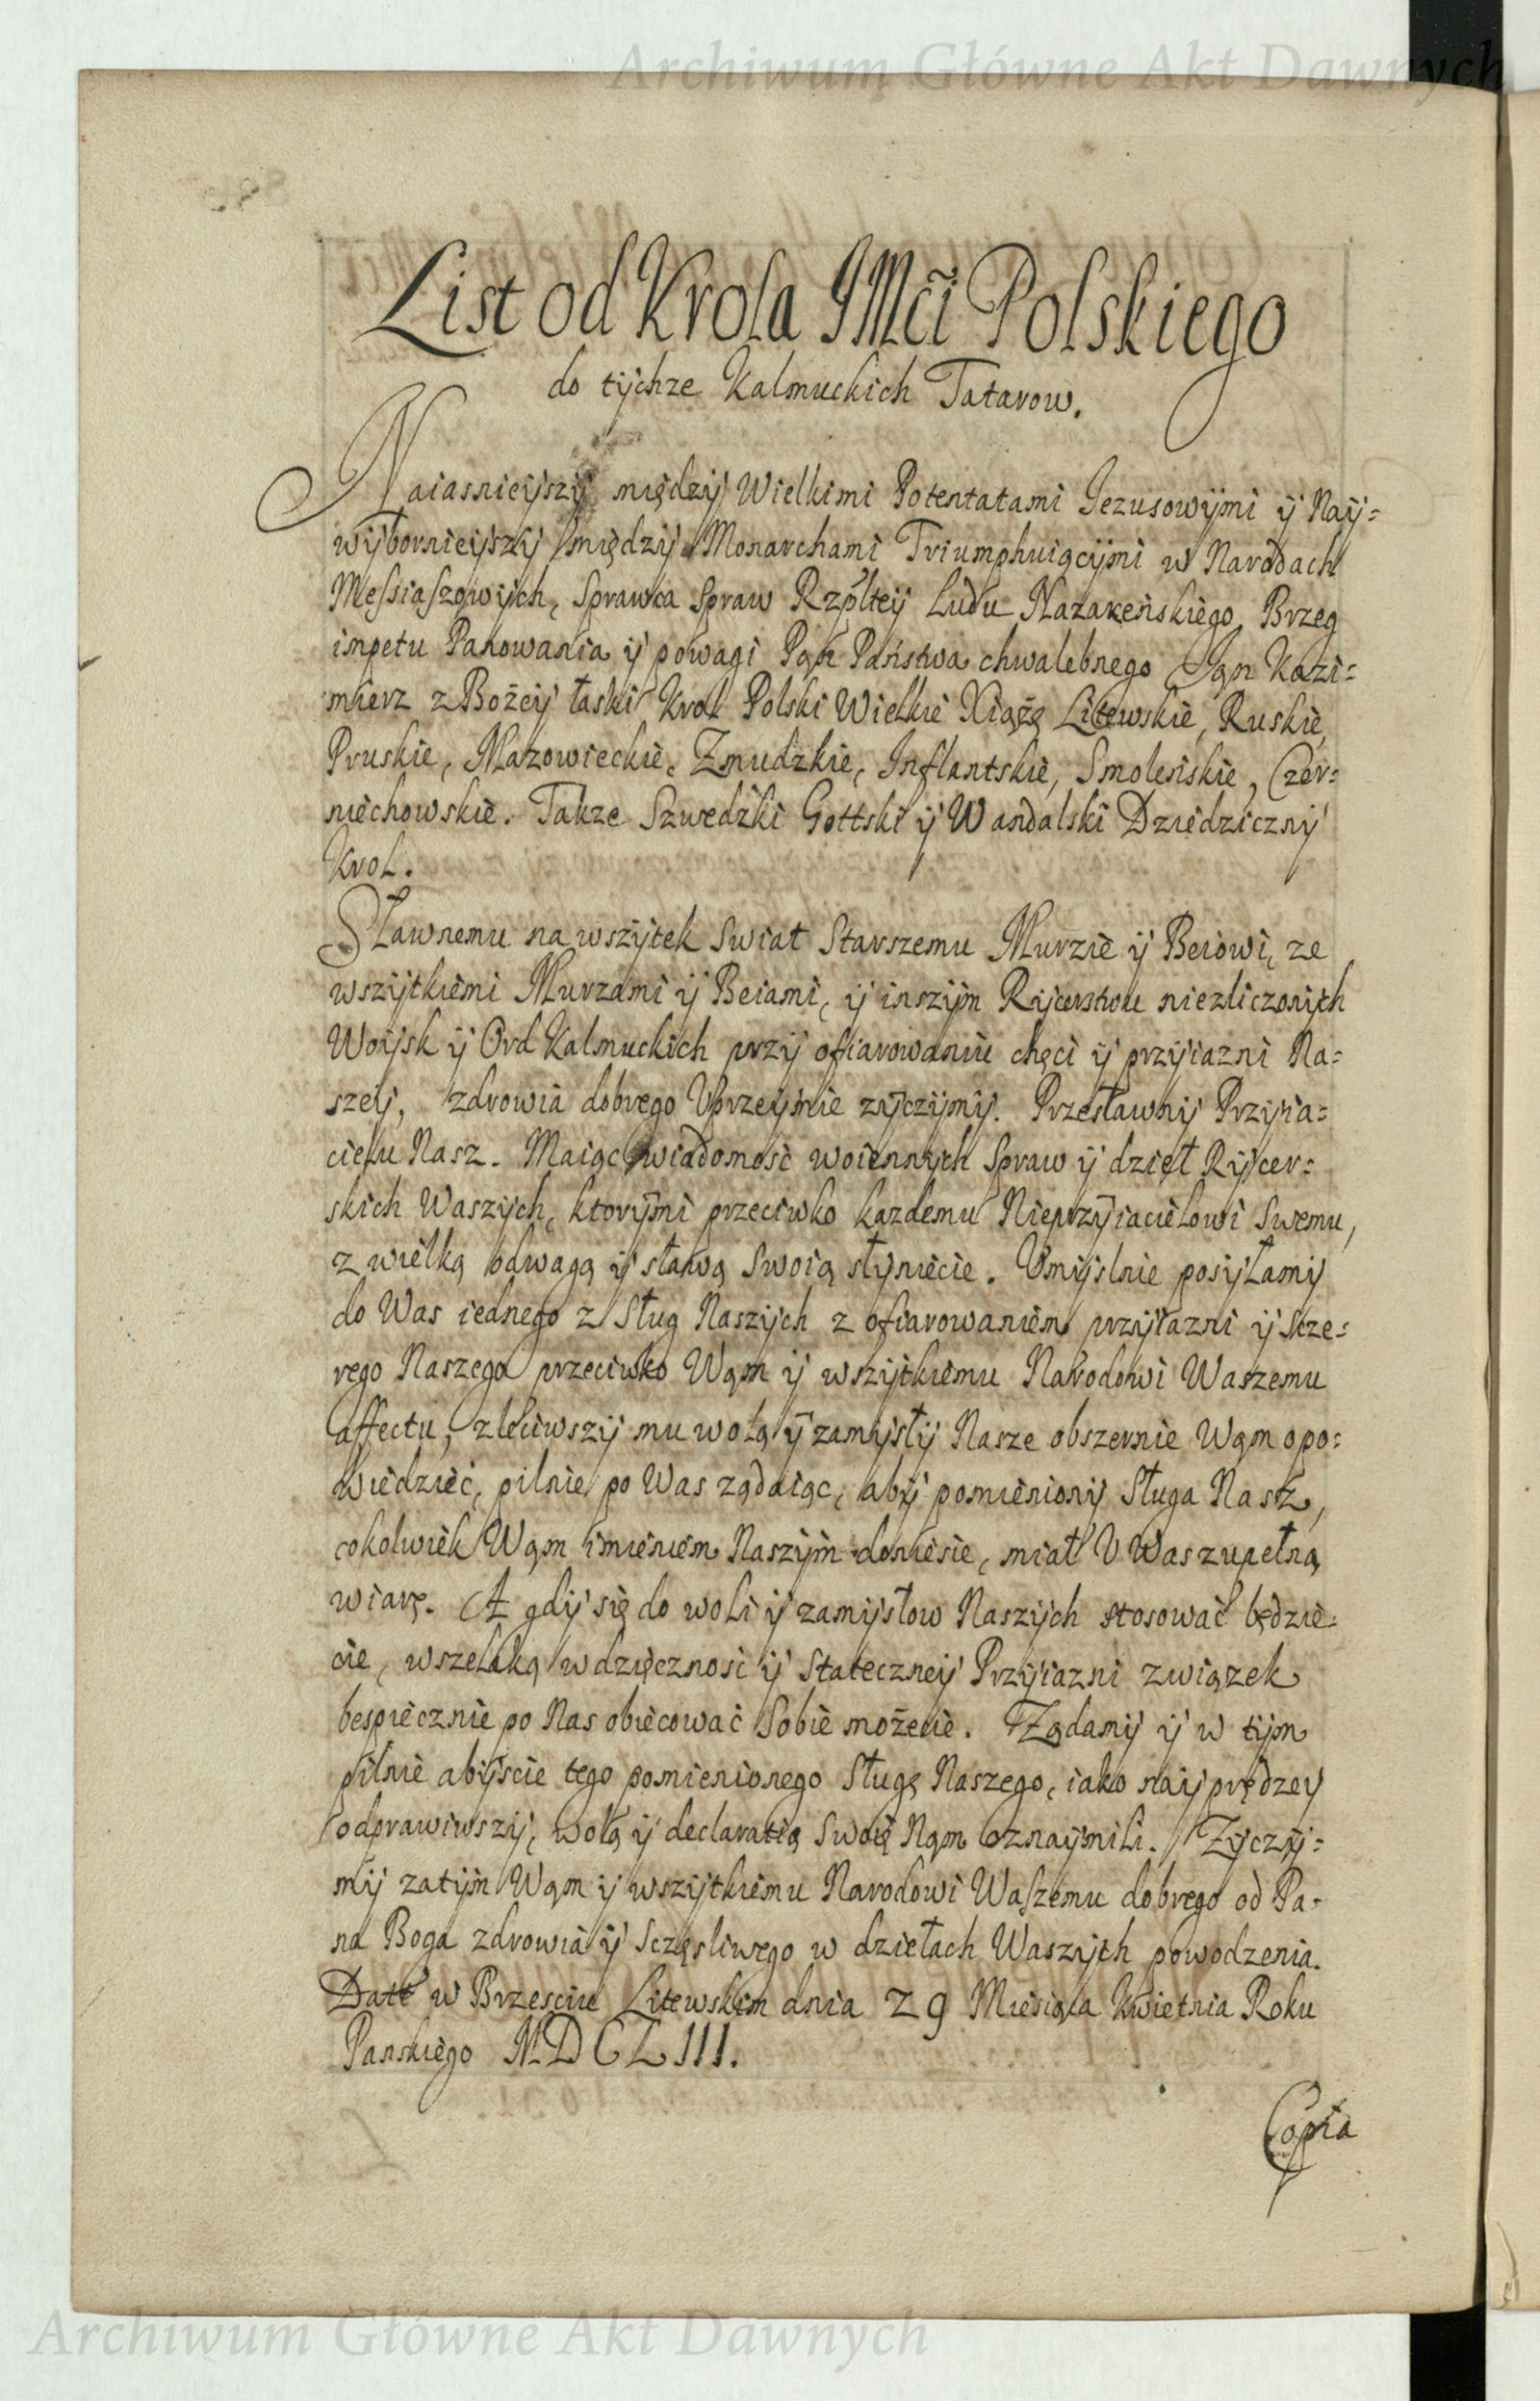 Archiwum Główne Akt Dawnych
List od Krola JMći Polskiego
do tychze Kalmuckich Tatarow.
Naiasnieyszy między Wielkimi Potentatami Jezusowymi y Nay=
wybornieyszy między Monarchami Triumphuiącymi w Narodach
Messiaszowych, Sprawca Spraw Rzpltey Ludu Nazareńskiego, Brzeg
impetu Panowania y powagi Pąn Państwa chwalebnego Jąn Kazi=
mierz z Bożey łaski Krol Polski Wielkie Xiążę Litewskie, Ruskie,
Pruskie, Mazowieckie, Zmudzkie, Inflantskie, Smolenskie, Czer=
niechowskie. Takze Szwedzki Gottski y Wandalski Dziedziczny
Krol.
Sławnemu na wszytek Swiat Starszemu Murzie y Beiowi, ze
wszytkiemi Murzami y Beiami, y inszym Rycerstwu niezliczonych
Woysk y Ord Kalmuckich przy ofiarowaniu chęci y przyiazni Na=
szey, zdrowia dobrego Vprzeymie zyczymy. Przesławny Przyia=
cielu Nasz. Maiąc wiadomość woiennych Spraw y dzieł Rycer=
skich Waszych, ktorymi przeciwko kazdemu Nieprzyiacielowi Swemu,
z wielką odwagą y sławą Swoią słyniecie. Vmyslnie posyłamy
do Was iednego z Sług Naszych z ofiarowaniem przyiazni y Scze=
rego Naszego przeciwko Wąm y wszytkiemu Narodowi Waszemu
affectu, zleciwszy mu wolą y zamysły Nasze obszernie Wąm opo=
wiedzieć, pilnie po Was ządaiąc, aby pomieniony Sługa Nasz,
cokolwiek Wąm imieniem Naszym doniesie, miał V Was zupełną
wiarę. A gdy się do woli y zamysłow Naszych stosować będzie=
cie, wszelaką wdzięczność y Stateczney Przyiazni związek
bespiecznie po Nas obiecować Sobie możecie. Ządamy y w tym
pilnie abyscie tego pomienionego Sługę Naszego, iako nayprędzey
odprawiwszy, wolą y declaratią Swoię Nąm oznaymili. Zyczy=
my zatym Wąm y wszytkiemu Narodowi Waszemu dobrego od Pa=
na Boga zdrowia y Sczęsliwego w dziełach Waszych powodzenia.
Datt w Brzesciu Litewskim dnia 29 Miesiąca Kwietnia Roku
Panskiego MDCLIII.
Copia
Archiwum Główne Akt Dawnych